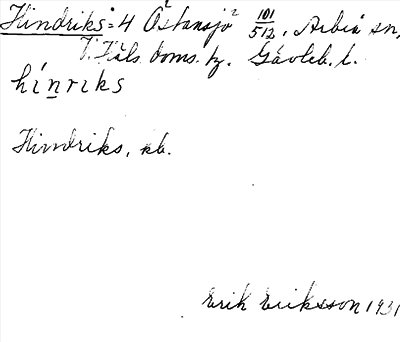 Hindriks: 4 Östansjö 101/512, Arbrå sn,
V. Häls. doms. hz. Gävleb. l.
hinriks
Hindriks, kb.
Erik Eriksson 1931